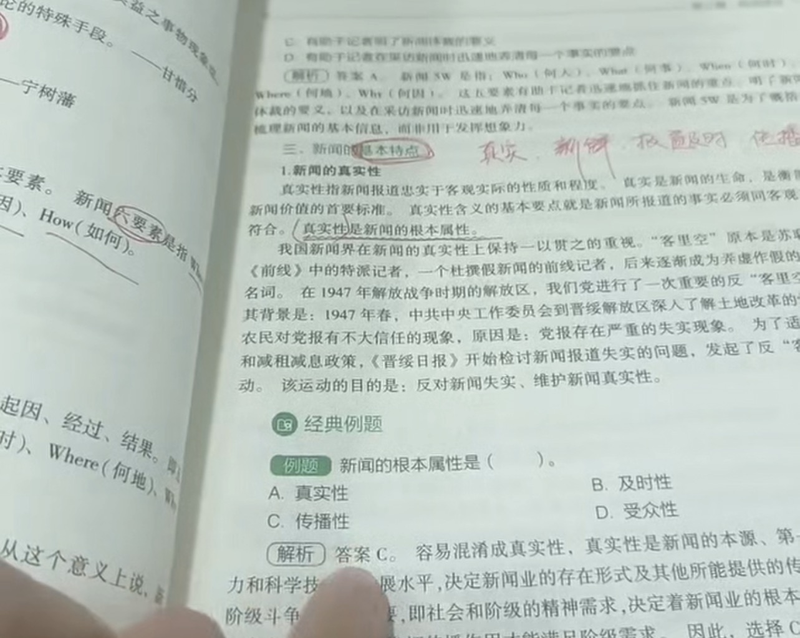 论的特殊手段。 ——甘惜分
——宁树藩
要素。 新闻六要素是指
因)、How(如何)。
起因、经过、结果。
时)、Where(何地)、
从这个意义上说、
C. 有助于记者明了新闻体裁的要义
D. 有助于记者在采访新闻时迅速地弄清每一个事实的要点
解析 答案 A。 新闻 5W 是指：Who(何人)、What(何事)、When(何时)、
Where(何地)、Why(何因)。 这五要素有助于记者迅速地抓住新闻的重点、明了新闻
体裁的要义，以及在采访新闻时迅速地弄清每一个事实的要点。 新闻 5W 是为了概括
梳理新闻的基本信息，而非用于发挥想象力。
三、新闻的基本特点 真实、新鲜、报道及时、传播
1.新闻的真实性
真实性指新闻报道忠实于客观实际的性质和程度。 真实是新闻的生命，是衡
新闻价值的首要标准。 真实性含义的基本要点就是新闻所报道的事实必须同客观
符合。 真实性是新闻的根本属性。
我国新闻界在新闻的真实性上保持一以贯之的重视。“客里空”原本是苏
《前线》中的特派记者，一个杜撰假新闻的前线记者，后来逐渐成为弄虚作假的
名词。 在 1947 年解放战争时期的解放区，我们党进行了一次重要的反“客里空
其背景是：1947 年春，中共中央工作委员会到晋绥解放区深入了解土地改革的
农民对党报有不大信任的现象，原因是：党报存在严重的失实现象。 为了适
和减租减息政策，《晋绥日报》开始检讨新闻报道失实的问题，发起了反“客
动。 该运动的目的是：反对新闻失实、维护新闻真实性。
经典例题
例题 新闻的根本属性是( )。
A. 真实性 B. 及时性
C. 传播性 D. 受众性
解析 答案 C。 容易混淆成真实性，真实性是新闻的本源、第
力和科学技 展水平，决定新闻业的存在形式及其他所能提供的传
阶级斗争 要，即社会和阶级的精神需求，决定着新闻业的根本
因此，选择 C